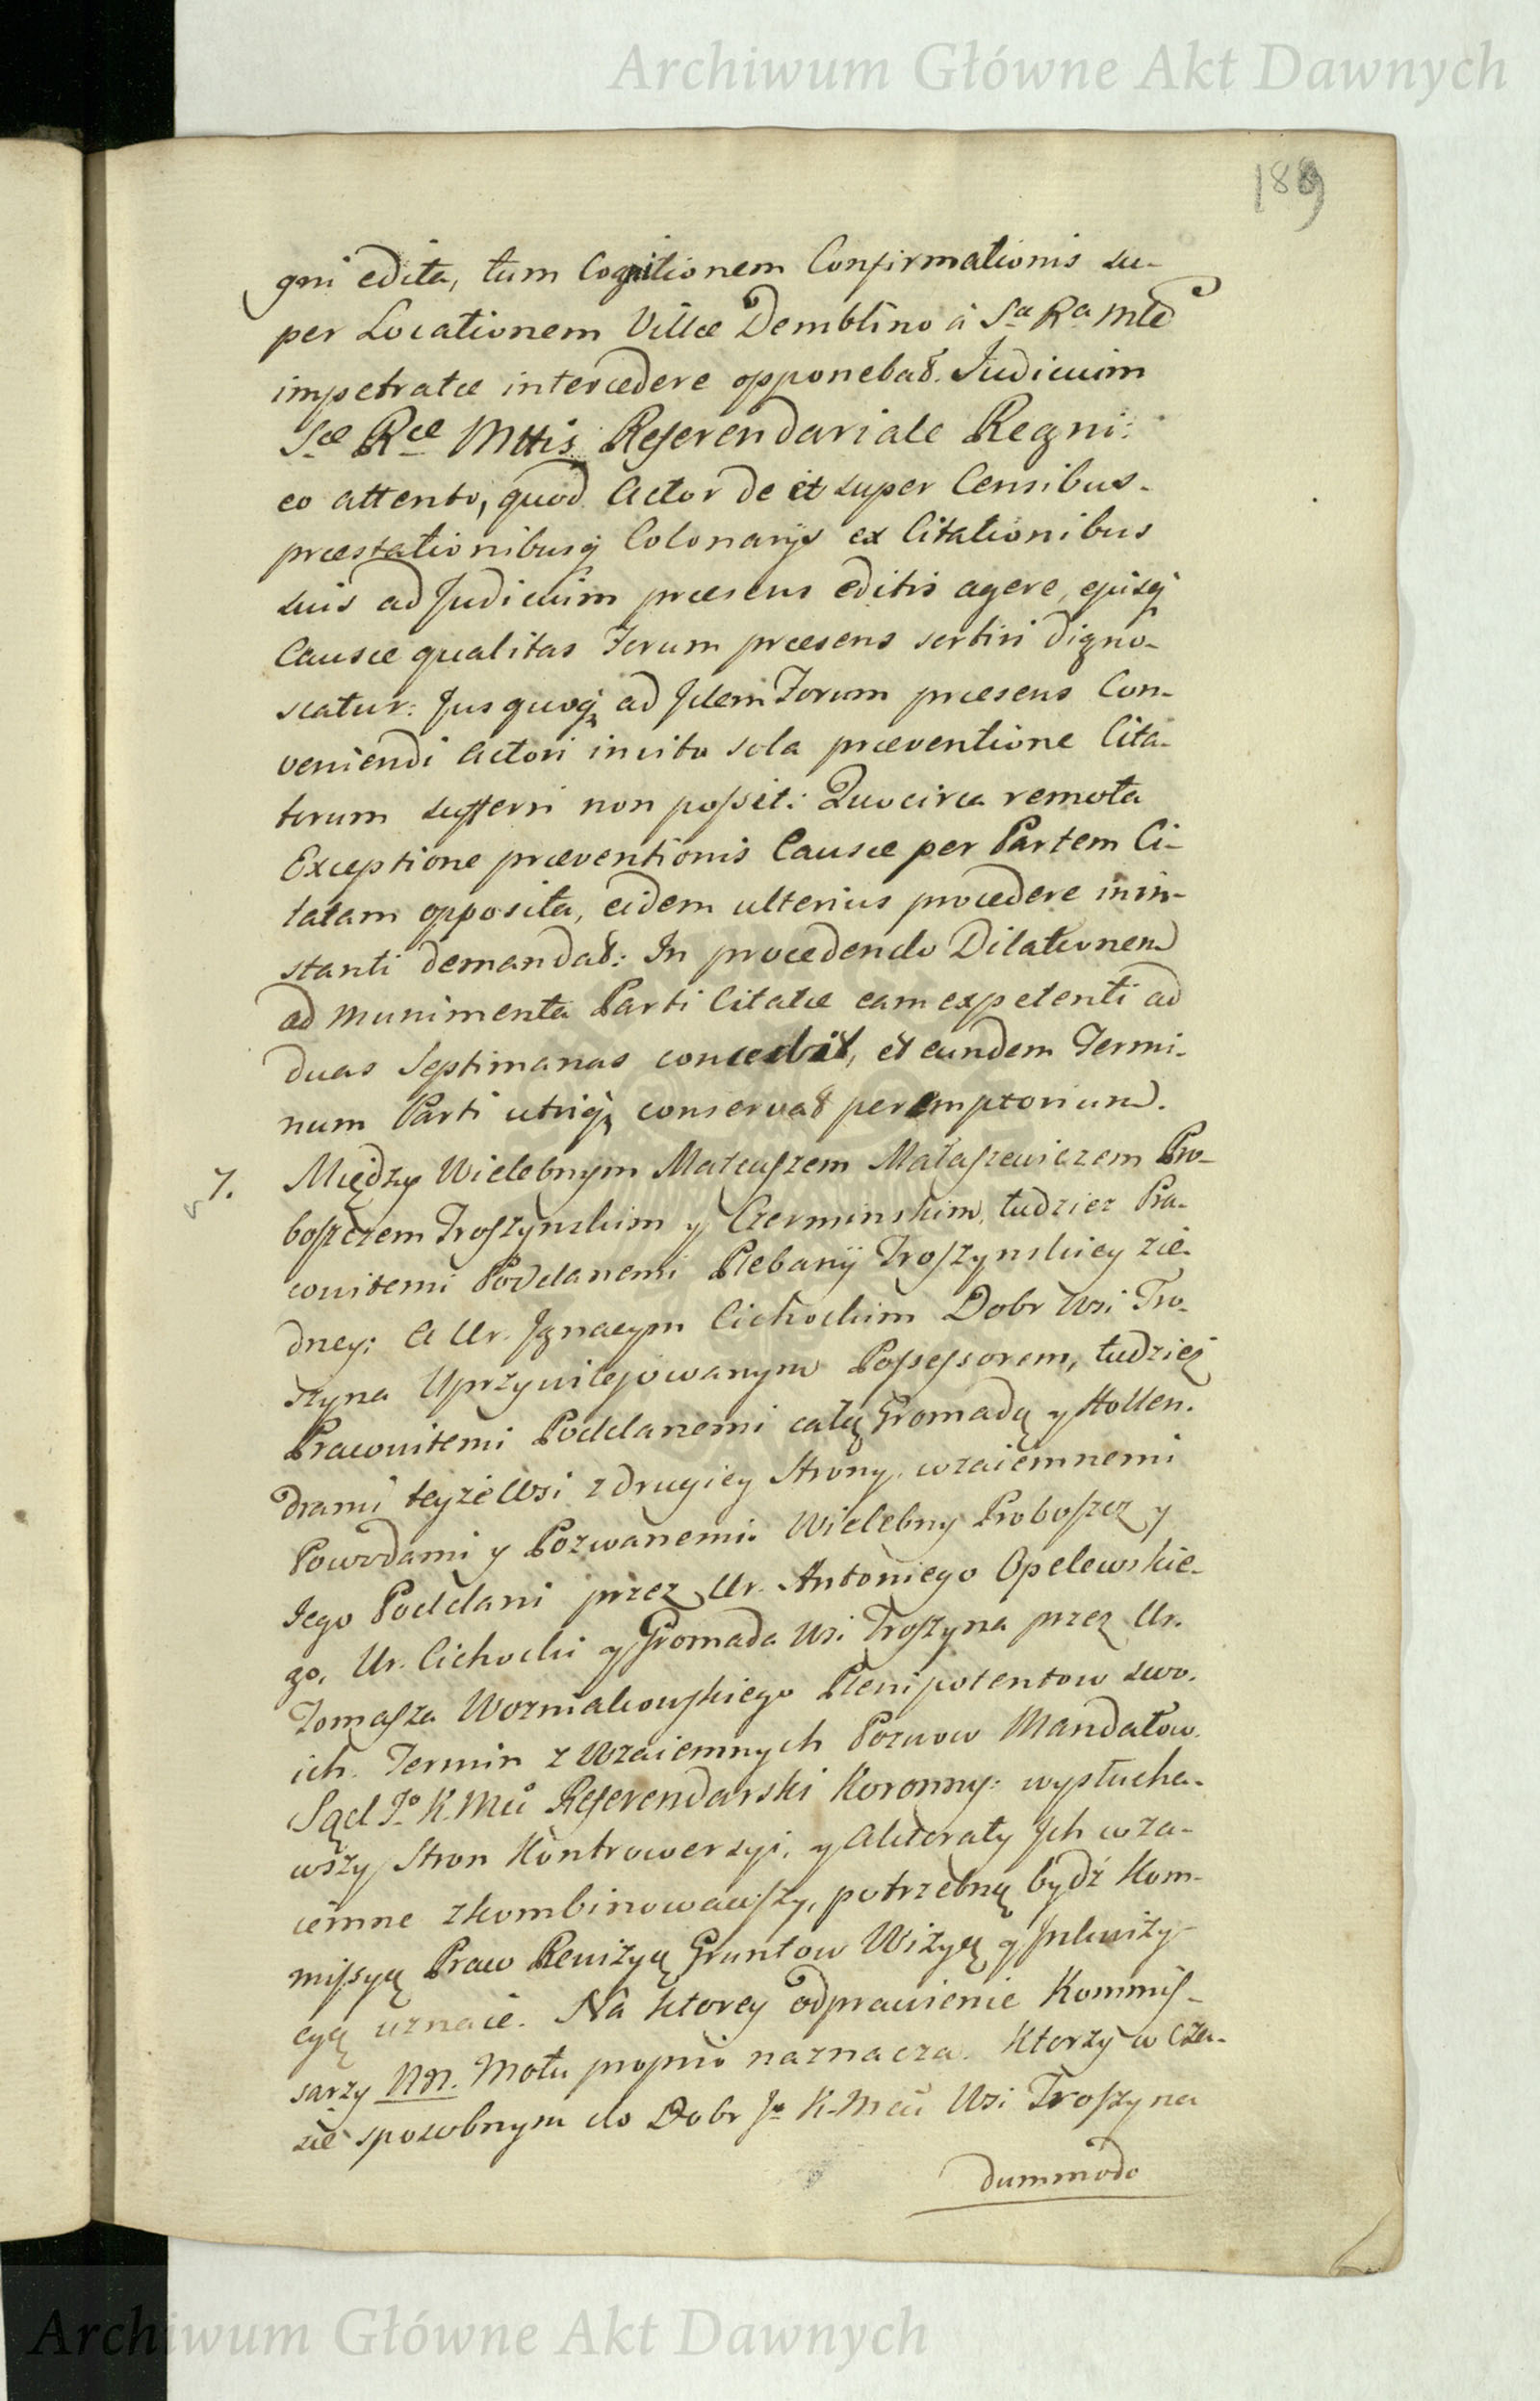 Archiwum Główne Akt Dawnych
189
gni edita, tum Cognitionem Confirmationis su-
per Locationem Villæ Demblino à Sa Ra Mtte
impetratæ intercedere opponebat. Judicium
Sæ Ræ Mttis Referendariale Regni:
eo attento, quod Actor de et super Censibus-
præstationibusq Colonarijs ex Citationibus
suis ad Judicium præsens editis agere, ejusq
Causæ qualitas Forum præsens sortiri digno-
scatur: Jus quoq ad Idem Forum præsens Con-
veniendi Actori invito sola præventione Cita-
torum auferri non possit: Quocirca remota
Exceptione præventionis Causæ per Partem Ci-
tatam opposita, eidem ulterius procedere in in-
stanti demandat: In procedendo Dilationem
ad munimenta Parti Citatæ eam expetenti ad
duas Septimanas concedit, et eundem Termi-
num Parti utriq conservat peremptorium.
7. Między Wielebnym Mateuszem Mataszewiczem Pro-
boszczem Troszynskim y Czerminskim, tudziez Pra-
cowitemi Poddanemi Plebanÿ Troszynskiey zie-
dney: A Ur. Jgnacym Cichockim Dobr Wsi Tro-
szyna Uprzywilejowanym Possessorem, tudziez
Pracowitemi Poddanemi całą Gromadą y Hollen-
drami teyże Wsi z drugiey Strony, wzaiemnemi
Powodami y Pozwanemi. Wielebny Proboszcz y
Jego Poddani przez Ur. Antoniego Opelewskie-
go, Ur. Cichocki y Gromada Wsi Troszyna przez Ur.
Tomasza Wozniakowskiego Plenipotentow swo-
ich. Termin z Wzaiemnych Pozwow Mandatow.
Sąd Jo K. Mci Referendarski Koronny: wysłucha-
wszy Stron Kontrowersyi, y Akteraty Jch wza-
iemne zkombinowawszy, potrzebną bydź Kom-
missyą Praw Rewizyą Gruntow Wizyą y Jnkwizy-
cyą uznaie. Na ktorey odprawienie Kommis-
sarzy NN. Motu proprio naznacza. Ktorzy w Cza-
sie sposobnym do Dobr Jo K. Mci Wsi Troszyna
dummodo
Archiwum Główne Akt Dawnych